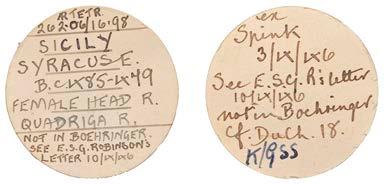 AR TETR.
262.06/16.98
SICILY
SYRACUSE.
B.C. IX85-IX79
FEMALE HEAD R.
QUADRIGA R.
NOT IN BOEHRINGER.
SEE E.S.G. ROBINSON'S
LETTER 10/IX/IX6
ex
Spink
3/IX/IX6
See E.S.G. R's letter
10/IX/IX6
not in Boehringer.
Cf. Du Ch. 18.
K/9SS